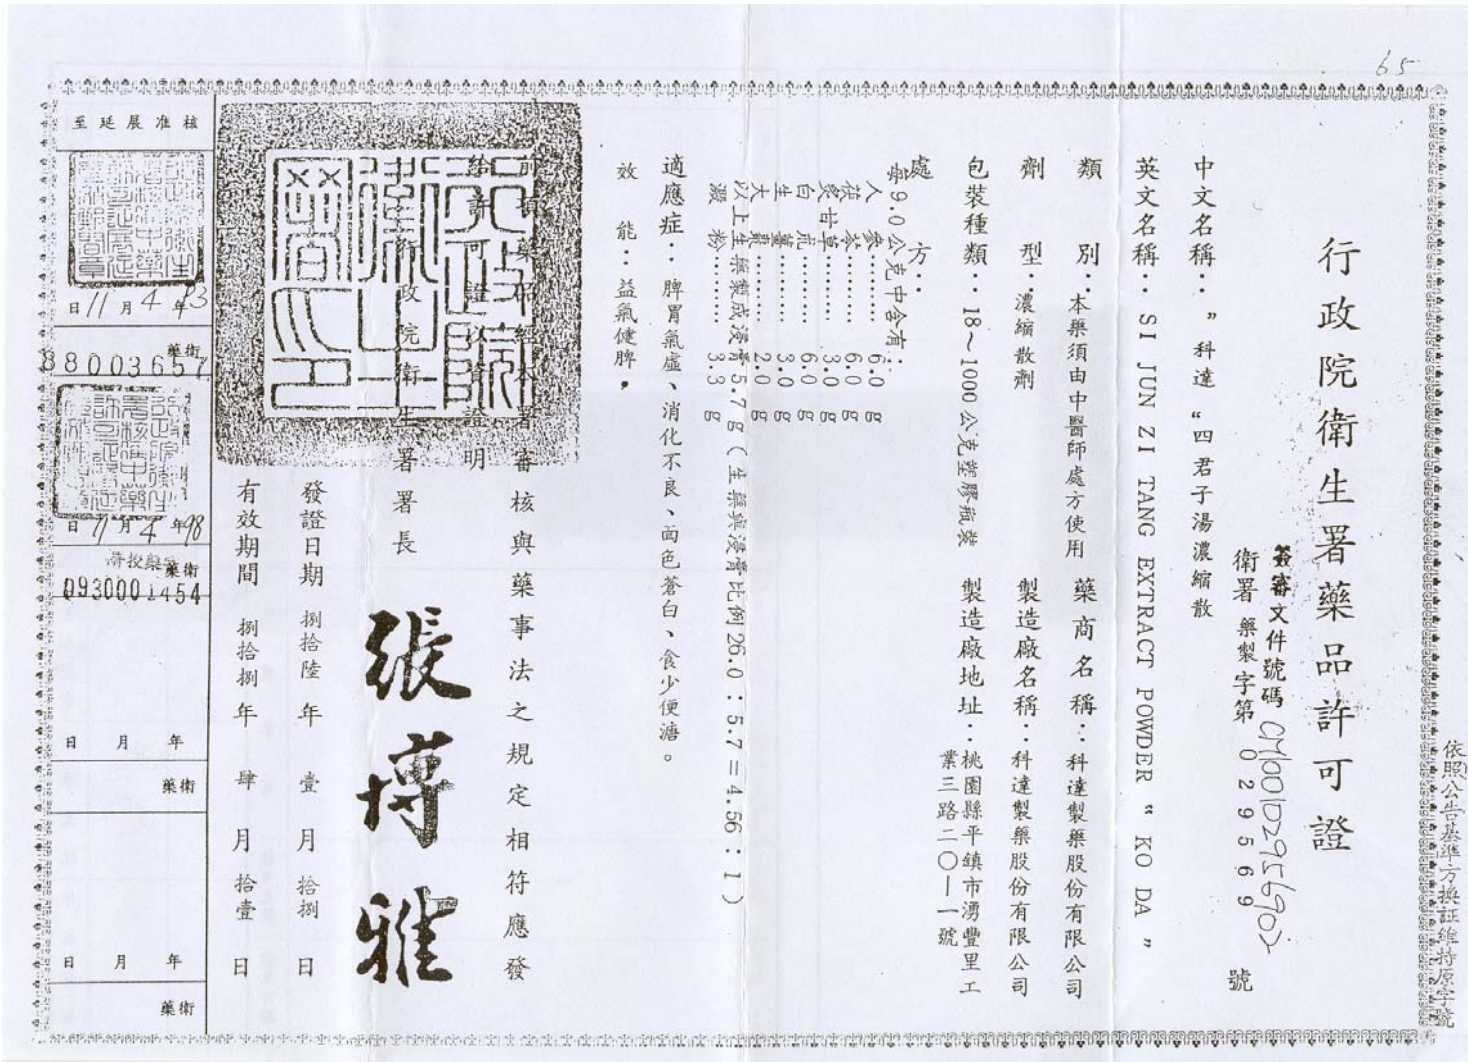 65
依照公告基準方換証維持原字號
行政院衛生署藥品許可證
簽審文件號碼
衛署藥製字第029569號
中文名稱：”科達“四君子湯濃縮散
英文名稱：SI JUN ZI TANG EXTRACT POWDER “ KO DA ”
類別：本藥須由中醫師處方使用
藥商名稱：科達製藥股份有限公司
劑型：濃縮散劑
製造廠名稱：科達製藥股份有限公司
包裝種類：18～1000公克塑膠瓶裝
製造廠地址：桃園縣平鎮市湧豐里工
業三路二〇—一號
處方：
每9.0公克中含有：
人參………6.0 g
茯苓………6.0 g
炙甘草……3.0 g
白朮………6.0 g
生薑………3.0 g
大棗………2.0 g
以上生藥製成浸膏5.7 g（生藥與浸膏比例26.0：5.7＝4.56：1）
澱粉………3.3 g
適應症：脾胃氣虛、消化不良、面色蒼白、食少便溏。
效能：益氣健脾，
前項藥品經本署審核與藥事法之規定相符應發
給許可證以資證明
行政院衛生署署長 張博雅
發證日期 捌拾陸年壹月拾捌日
有效期間 捌拾捌年肆月拾壹日
核准展延至
93年4月11日
衛藥
88003657
98年4月11日
衛藥
0930001454
年月日
衛藥
年月日
衛藥